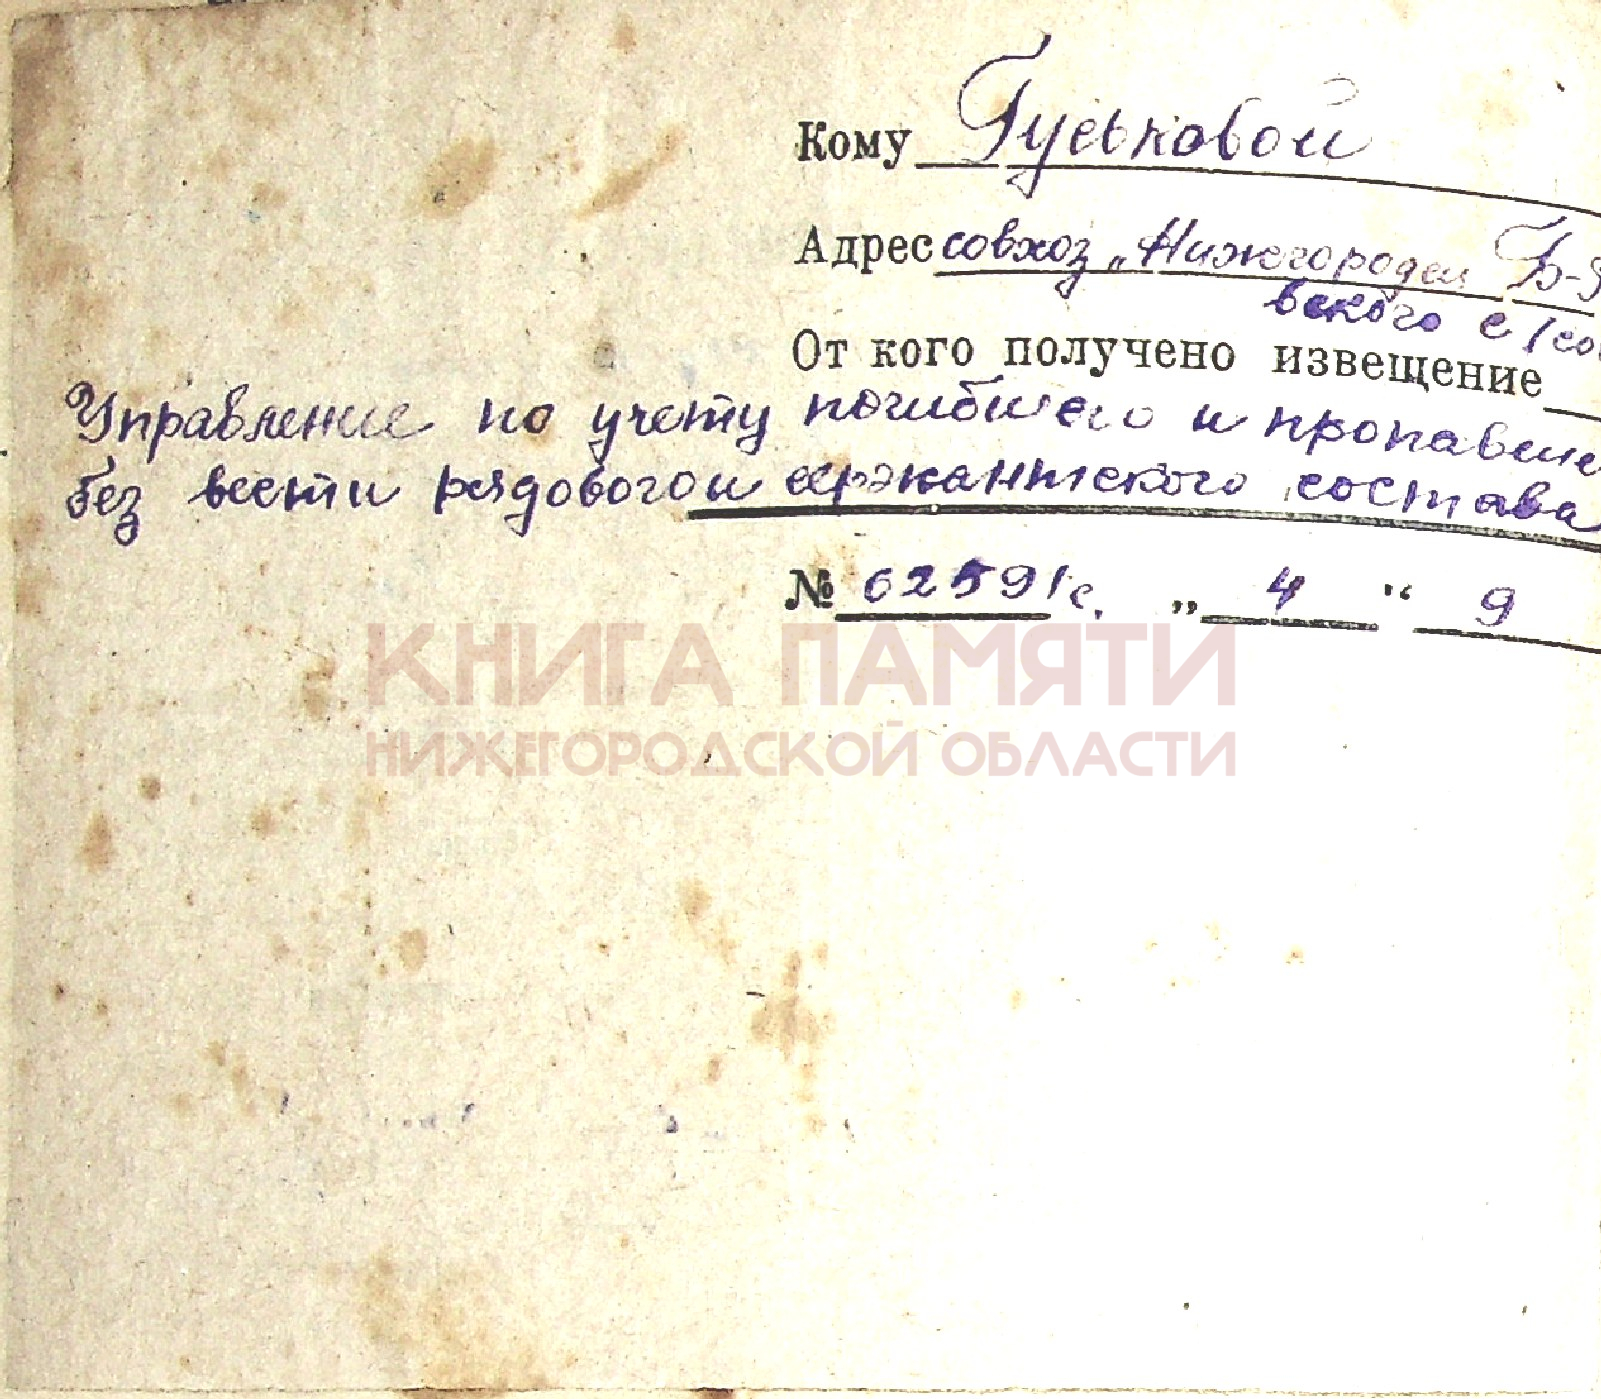 Кому Гуськовой
Адрес совхоз „Нижгородец Б-
вского с/со
От кого получено извещение
Управление по учету погибшего и пропавше
без вести рядового и сержантского состава
№ 62591с. „ 4 “ 9
КНИГА ПАМЯТИ
НИЖЕГОРОДСКОЙ ОБЛАСТИ